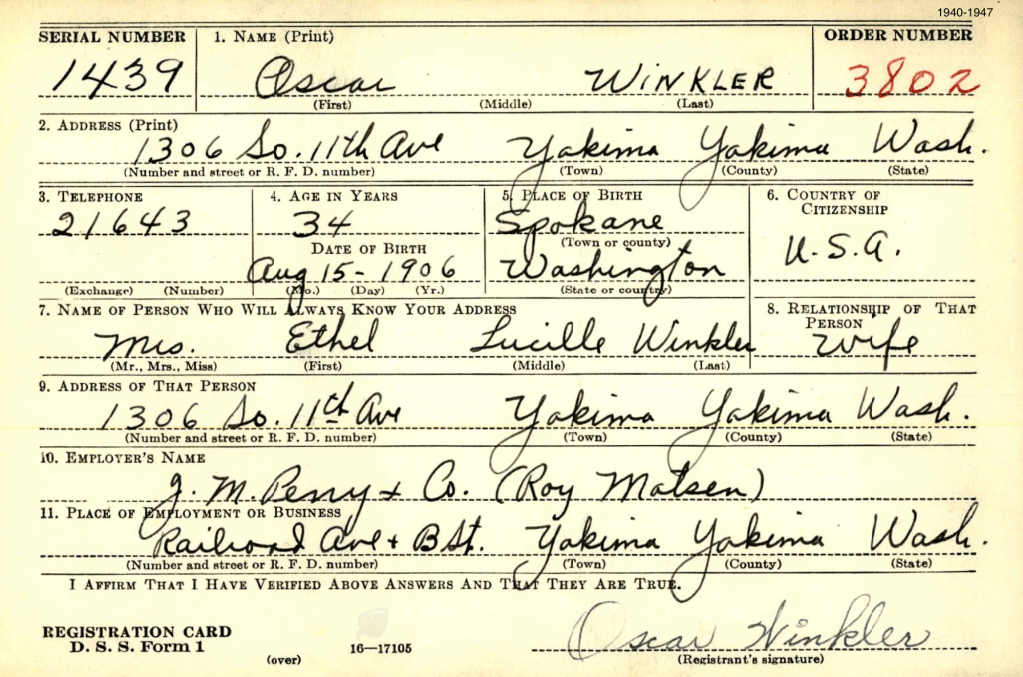 1940-1947
SERIAL NUMBER 1. NAME (Print) ORDER NUMBER
1439 Oscar WINKLER 3802
(First) (Middle) (Last)
2. ADDRESS (Print)
1306 So. 11th Ave Yakima Yakima Wash.
(Number and street or R. F. D. number) (Town) (County) (State)
3. TELEPHONE 4. AGE IN YEARS 5. PLACE OF BIRTH 6. COUNTRY OF CITIZENSHIP
21643 34 Spokane
DATE OF BIRTH (Town or county) U.S.A.
Aug 15-1906 Washington
(Exchange) (Number) (Mo.) (Day) (Yr.) (State or country)
7. NAME OF PERSON WHO WILL ALWAYS KNOW YOUR ADDRESS 8. RELATIONSHIP OF THAT PERSON
Mrs. Ethel Lucille Winkler Wife
(Mr., Mrs., Miss) (First) (Middle) (Last)
9. ADDRESS OF THAT PERSON
1306 So. 11th Ave Yakima Yakima Wash.
(Number and street or R. F. D. number) (Town) (County) (State)
10. EMPLOYER'S NAME
J. M. Perry + Co. (Roy Matsen)
11. PLACE OF EMPLOYMENT OR BUSINESS
Railroad Ave + B St. Yakima Yakima Wash.
(Number and street or R. F. D. number) (Town) (County) (State)
I AFFIRM THAT I HAVE VERIFIED ABOVE ANSWERS AND THAT THEY ARE TRUE.
REGISTRATION CARD
D. S. S. Form 1 Oscar Winkler
(over) 16—17105 (Registrant's signature)